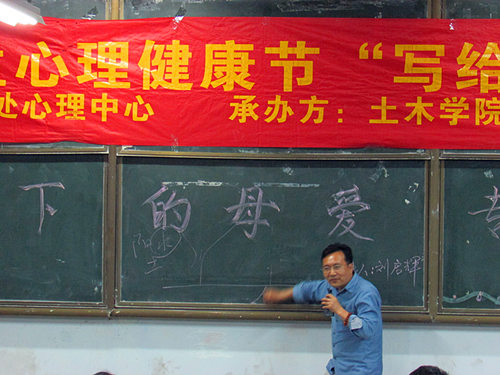 心理健康节 “写给
处心理中心 承办方：土木学院
下的母爱
阳
人:刘启辉